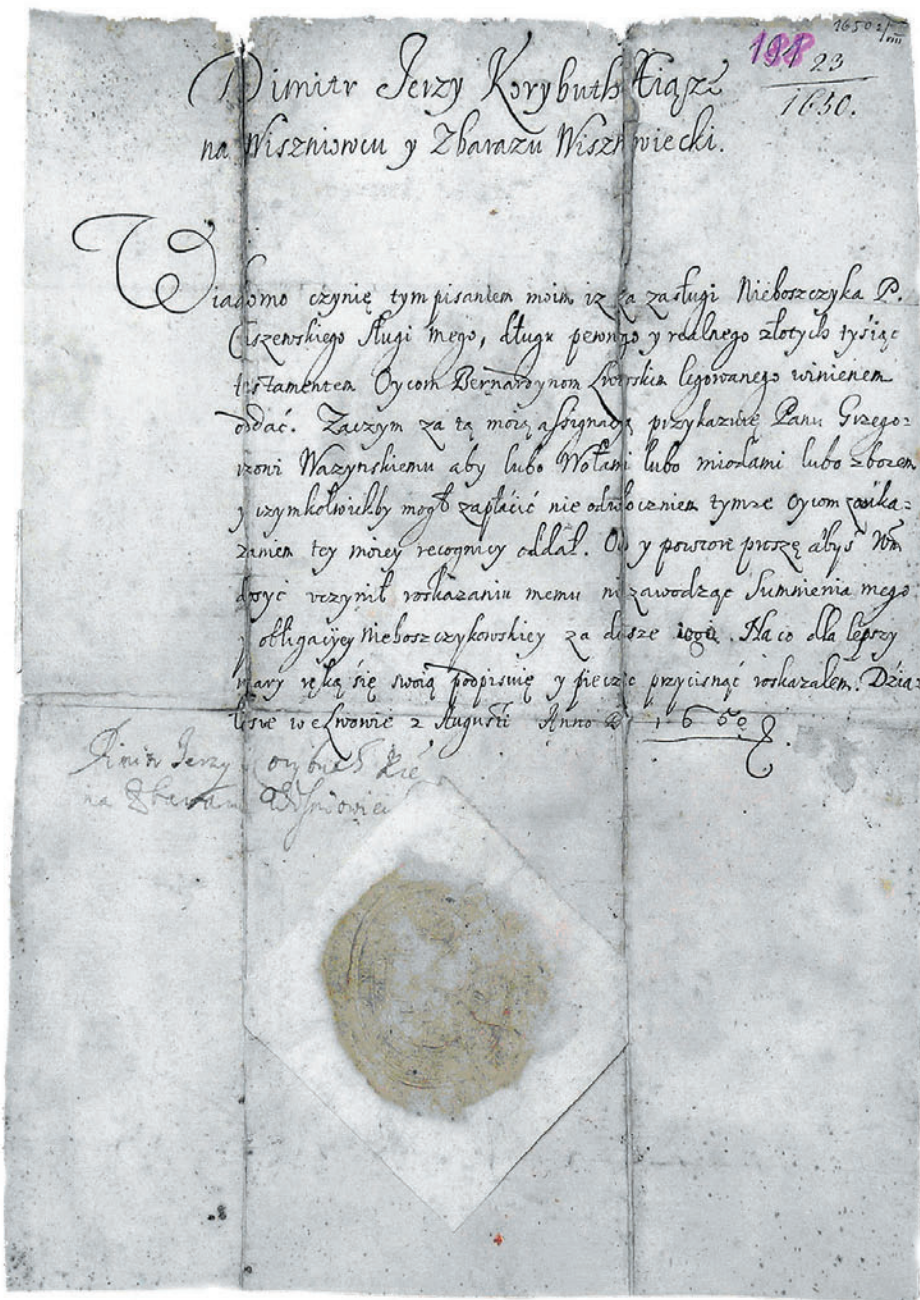 1650 2/VIII
188
23
1650.
Dimitr Jerzy Korybuth Xiąże
na Wiszniowcu y Zbarazu Wiszniowiecki.
Wiadomo czynię tym pisaniem moim iz za zasługi Nieboszczyka P.
Ciszewskiego sługi mego, długu pewnego y realnego złotych tysiąc
testamentem Oycom Bernardynom Lwowskim legowanego winienem
oddać. Zaczym za tą moią assignacyą przykazuię Panu Grzego:
rzowi Wazynskiemu aby lubo Wołami lubo miodami lubo zbozem
y czymkolwiekby mogł zapłacić nie odwłoczniem tymze Oycom zaoka:
zaniem tey moiey recognicy oddał. O co y powtore proszę abyś Wm
dosyc uczynił roskazaniu memu nie zawodząc Sumnienia mego
y obligacyey Nieboszczykowskiey za dusze iego. Na co dla lepszy
wiary ręką się swoią podpisuię y pieczęc przycisnąć roskazałem. Dzia:
łosie we Lwowie 2 Augusti Anno D 1650.
Dimitr Jerzy Korybut Xże
na Zbarazu Wiśniowiecki